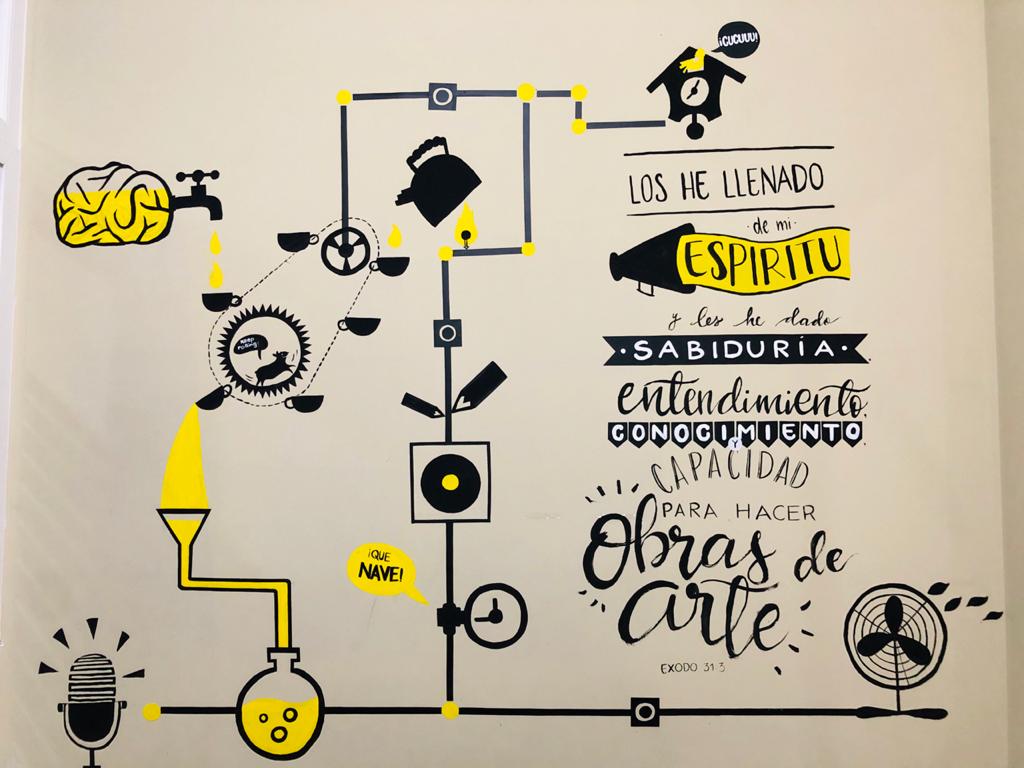 ¡CUCUUU!
LOS HE LLENADO
de mi
ESPIRITU
y les he dado
SABIDURÍA
entendimiento,
CONOCIMIENTO
Y
CAPACIDAD
PARA HACER
Obras de
arte
EXODO 31:3
KEEP
ROLLING!
¡QUE
NAVE!